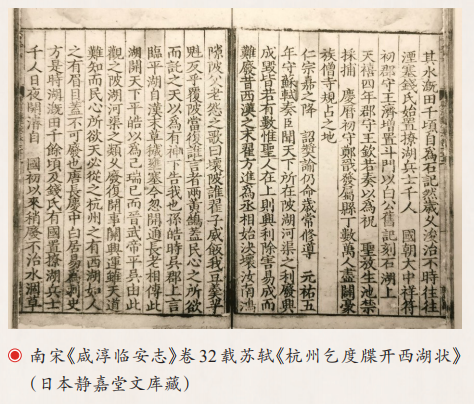 其水溉田千頃自為石記然歲久浚治不時往往
湮塞錢氏始置撩湖兵士千人　國朝大中祥符
初郡守王濟增置斗門以白居易記刻石湖上
天禧四年郡守王欽若奏以為祝　聖放生池禁
採捕　慶曆初守鄭戩發屬縣丁數萬人盡闢豪
族僧寺規占之地
仁宗嘉之降　詔獎諭仍命歲常修導　元祐五
年守蘇軾奏臣聞天下所在陂湖河渠之利廢興
成毀皆若有數惟聖人在上則興利除害易成而
難廢昔西漢之末翟方進為丞相始決壞汝南鴻
隙陂父老怨之歌曰壞陂誰翟子威飯我豆羹芋
魁反乎覆陂當復誰言者兩黃鵠蓋民心之所欲
而託之天以為有神下告我也孫皓時吳郡上言
臨平湖自漢末草穢壅塞今忽開通長老相傳此
湖開天下平皓以為己瑞已而晉武帝平吳由此
觀之陂湖河渠之類久廢復開事關興運雖天道
難知而民心所欲天必從之杭州之有西湖如人
之有眉目蓋不可廢也唐長慶中白居易為刺史
方是時湖溉田千餘頃及錢氏有國置撩湖兵士
千人日夜開濬自　國初以來稍廢不治水涸草
南宋《咸淳临安志》卷32载苏轼《杭州乞度牒开西湖状》
(日本静嘉堂文库藏)